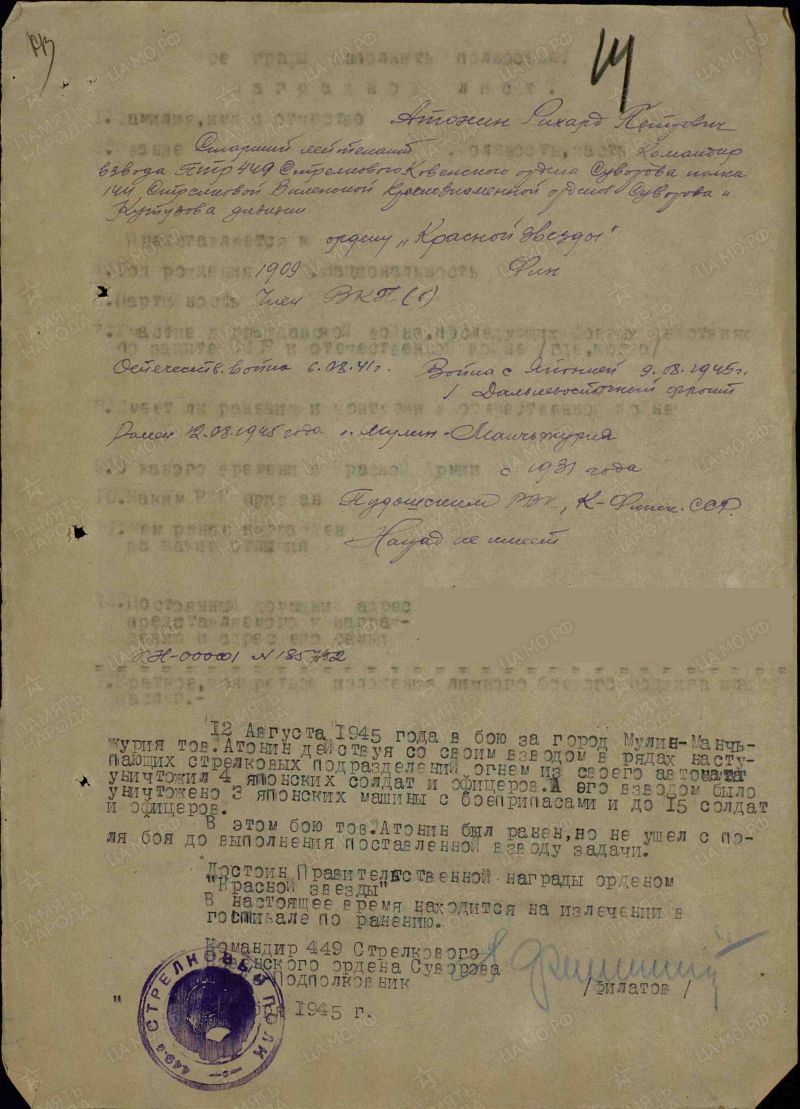 14
Наградной лист.
1. Фамилия, имя и отчество Атонин Рихард Петрович
2. Звание Старший лейтенант должность, часть Командир
взвода ПТР 449 Стрелкового Ковенского ордена Суворова полка
144 Стрелковой Виленской Краснознаменной орденов Суворова и
Кутузова дивизии
Представляется к ордену "Красной звезды"
Год рождения 1909 национальность Фин
Партийность Член ВКП(б)
7. Участие в гражданской войне, последующих боевых действиях
по защите СССР и отечественной войне /где, когда/
Отечеств. война 6.08.41г. Война с Японией 9.08.1945г.
1 Дальневосточный фронт
8. Имеет ли ранения и контузии в отечественной войне
Ранен 12.08.1945 года г. Мулин-Манчьжурия
9. С какого времени в Красной Армии с 1931 года
10. Каким РВК призван Пудожским РВК, К-Финс. ССР.
11. Чем ранее награжден
за какие отличия Наград не имеет
12. Постоянный домашний адрес
представляемого к награж-
дению и адрес его семьи
Краткое, конкретное изложение личного боевого подвига или
заслуг.-
12 Августа 1945 года в бою за город Мулин-Манчь-
журия тов.Атонин действуя со своим взводом в рядах насту-
пающих стрелковых подразделений огнем из своего автомата
уничтожил 4 японских солдат и офицеров.А его взводом было
уничтожено 3 японских машины с боеприпасами и до 15 солдат
и офицеров.
В этом бою тов.Атонин был ранен,но не ушел с по-
ля боя до выполнения поставленной взводу задачи.
Достоин Правительственной награды орденом
"Красной звезды"
В настоящее время находится на излечении в
госпивале по ранению.
Командир 449 Стрелкового
Ковенского ордена Суворова
Подполковник /Филатов /
" 1945 г.
449-й СТРЕЛКОВЫЙ ПОЛК
ПАМЯТЬ НАРОДА
ЦАМО.РФ